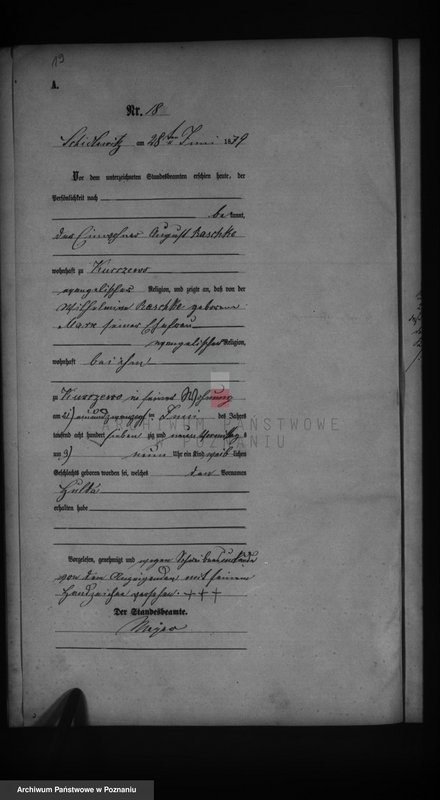 19
A.
Nr. 18
am 28 ten Juni 1879
Vor dem unterzeichneten Standesbeamten erschien heute, der
Persönlichkeit nach
be kannt,
der Einwohner August Raschke
wohnhaft zu Kurczewo
evangelischer Religion, und zeigte an, daß von der
Wilhelmine Raschke geborene
seiner Ehefrau
evangelischer Religion,
wohnhaft bei ihm
zu Kurczewo in seiner Wohnung
am 21 / einundzwanzigsten Juni des Jahres
tausend acht hundert sieben zig und neun Vormittag s
um neun Uhr ein Kind weib lichen
Geschlechts geboren worden sei, welches den Vornamen
Hulda
erhalten habe
ARCHIWUM PAŃSTWOWE
POZNANIU
Vorgelesen, genehmigt und wegen Schreibensunkunde
von dem Anzeigenden mit seinem
Handzeichen versehen. +++
Der Standesbeamte.
Meyer
Archiwum Państwowe w Poznaniu